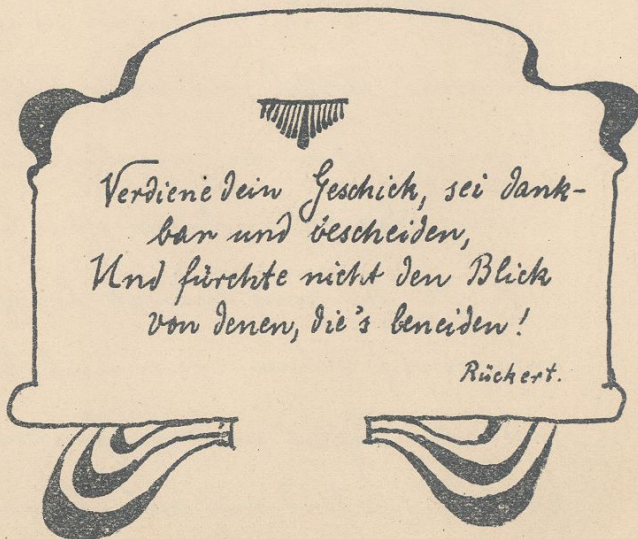 Verdiene dein Geschick, sei dank-
bar und bescheiden,
Und fürchte nicht den Blick
von denen, die's beneiden!
Rückert.